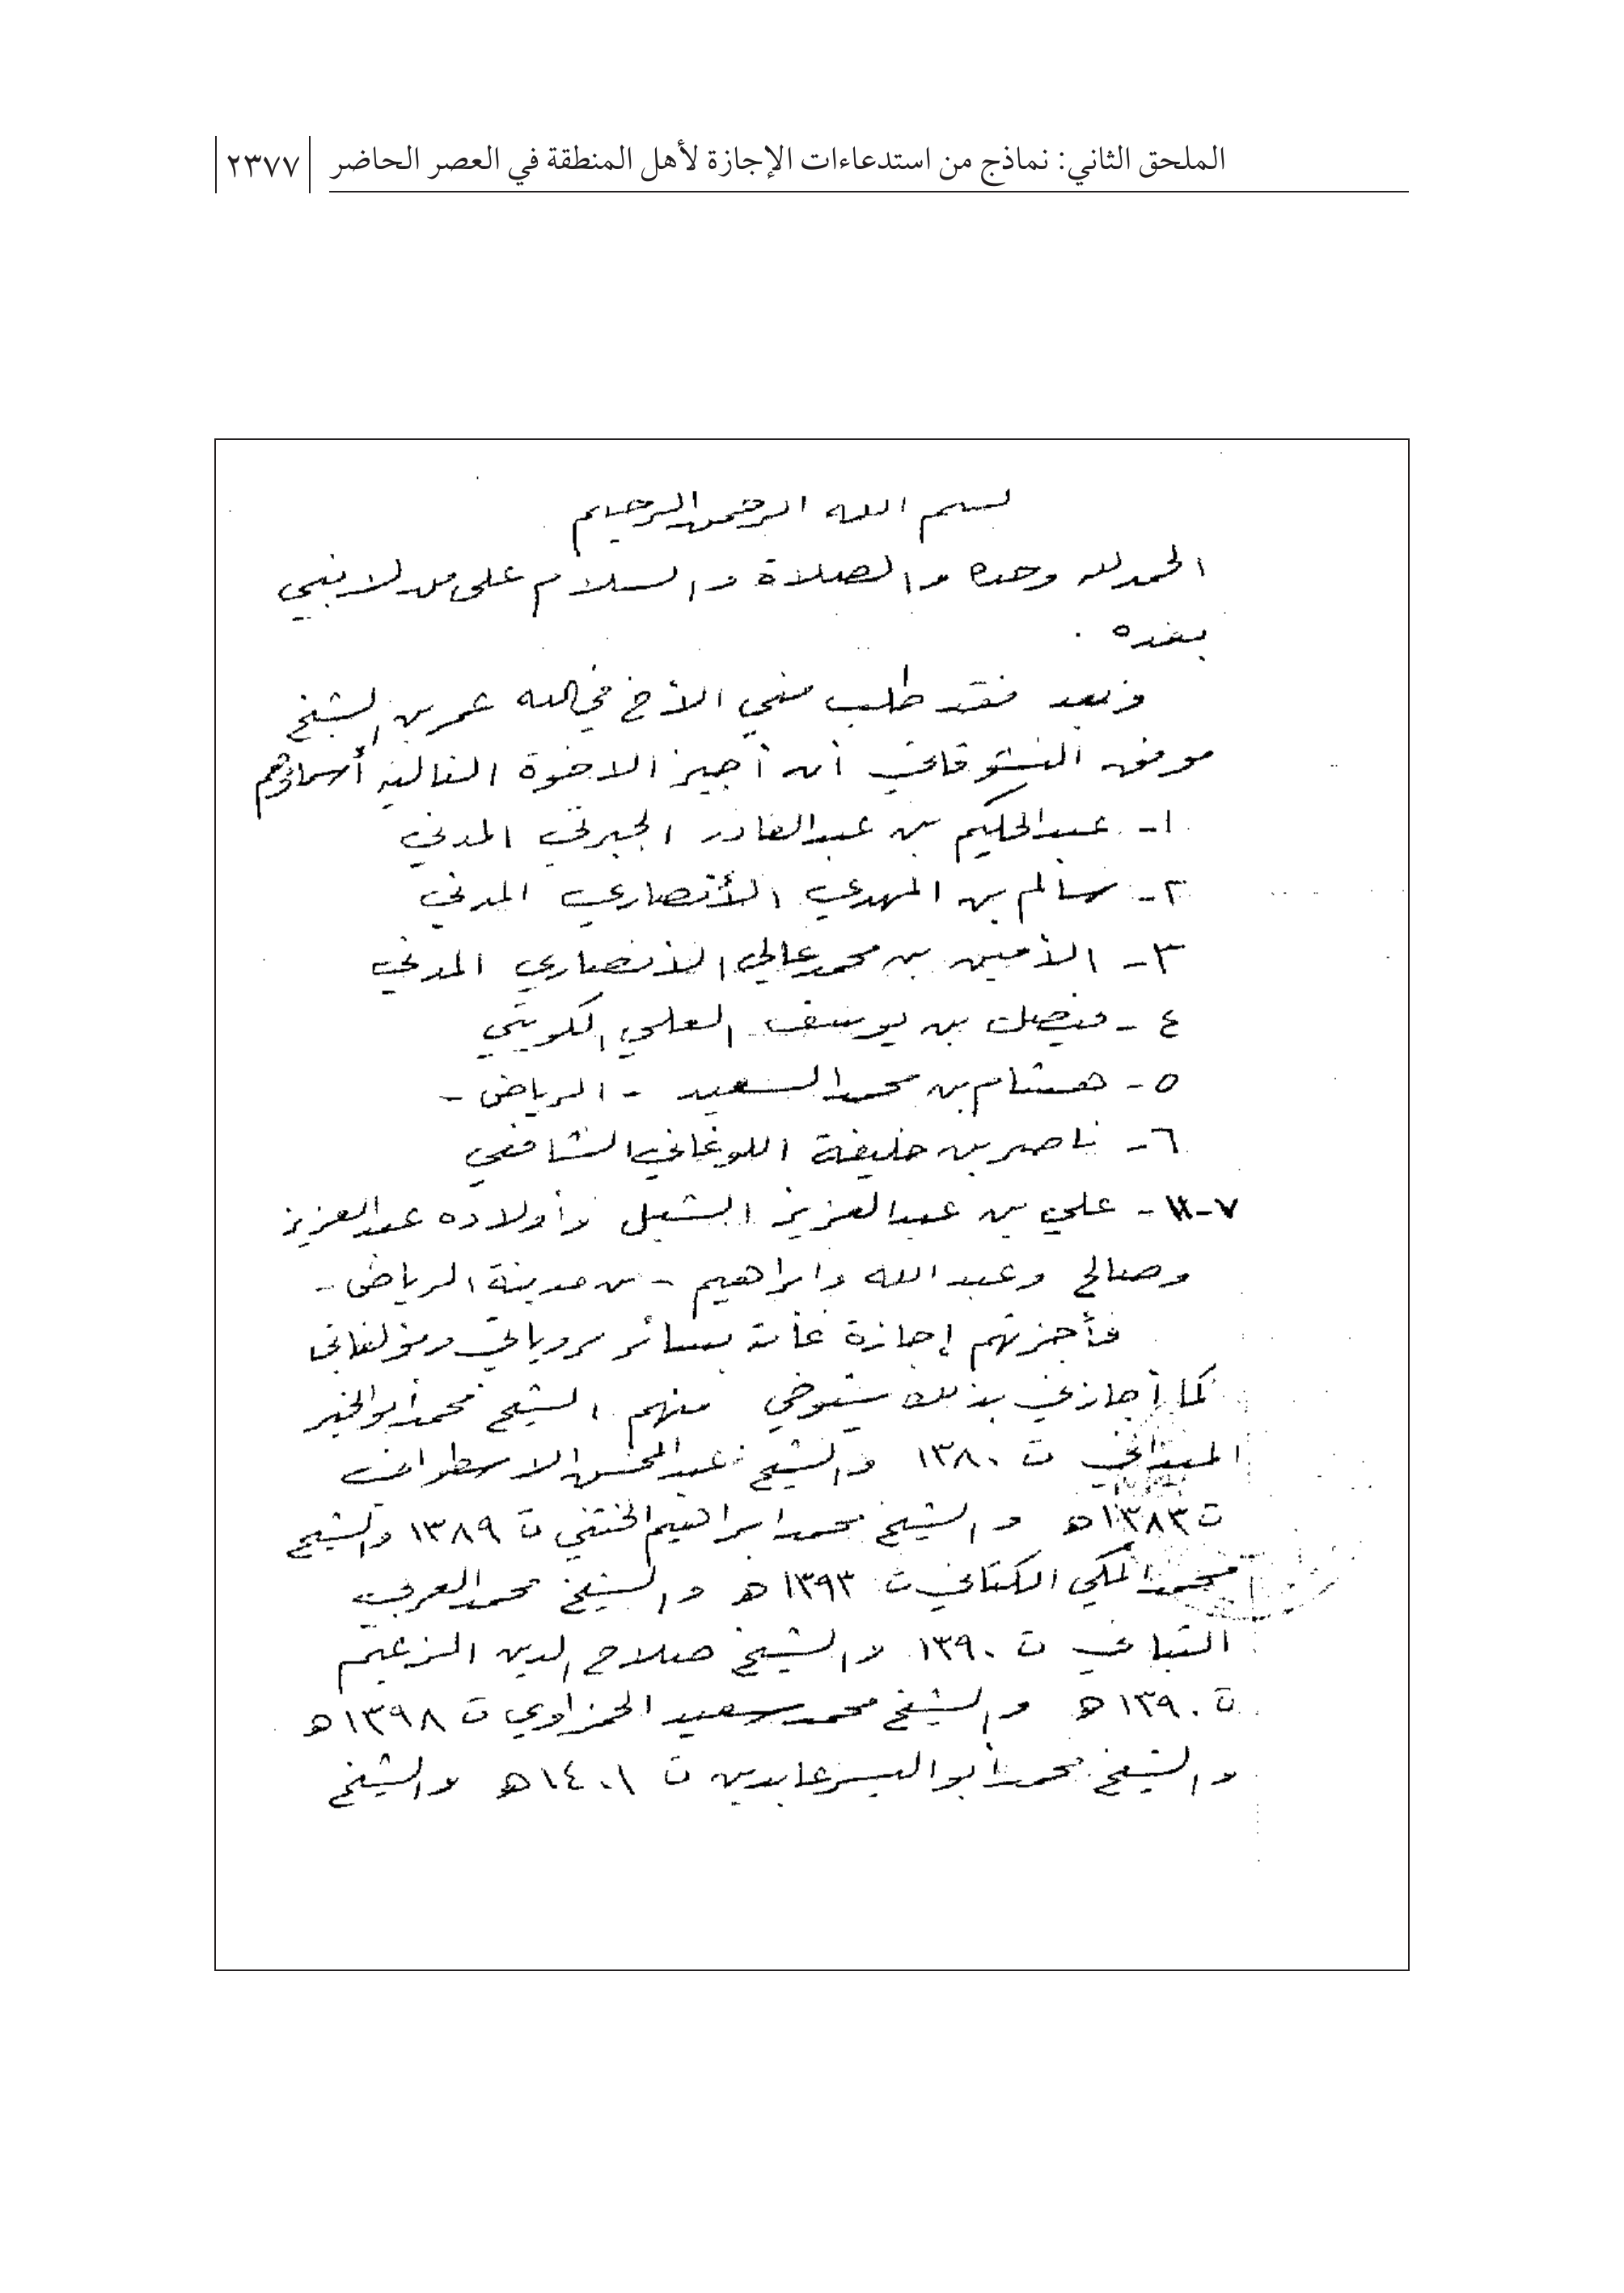 الملحق الثاني: نماذج من استدعاءات الإجازة لأهل المنطقة في العصر الحاضر ٢٣٧٧
بسم الله الرحمن الرحيم
الحمد لله وحده والصلاة والسلام على من لا نبي
بعده .
وبعد فقد طلب مني الأخ في الله عمر بن الشيخ
موفق النشوقاتي أن أجيز الاخوة التالية أسمائهم
١- عبد الحكيم بن عبد القادر الجبرتي المدني
٢- سالم بن المهدي الأنصاري المدني
٣- الأمين بن محمد عالي الأنصاري المدني
٤- فيصل بن يوسف العلي الكويتي
٥- هشام بن محمد السعيد - الرياض -
٦- ناصر بن خليفة اللوغاني الشافعي
علي بن عبد العزيز الشبل وأولاده عبد العزيز
وصالح وعبد الله وابراهيم - من مدينة الرياض -
فأجزتهم إجازة عامة بسائر مروياتي ومؤلفاتي
كما أجازني بذلك شيوخي منهم الشيخ محمد أبو الخير
الميداني ت ١٣٨٠ والشيخ عبد المحسن الاسطواني
ت ١٣٨٣ه والشيخ محمد ابراهيم الختني ت ١٣٨٩ والشيخ
محمد المكي الكتاني ت ١٣٩٣ ه والشيخ محمد العربي
التباني ت ١٣٩٠ والشيخ صلاح الدين الزعيم
ت ١٣٩٠ ه والشيخ محمد سعيد الحمزاوي ت ١٣٩٨ه
والشيخ محمد أبو اليسر عابدين ت ١٤٠١ه والشيخ